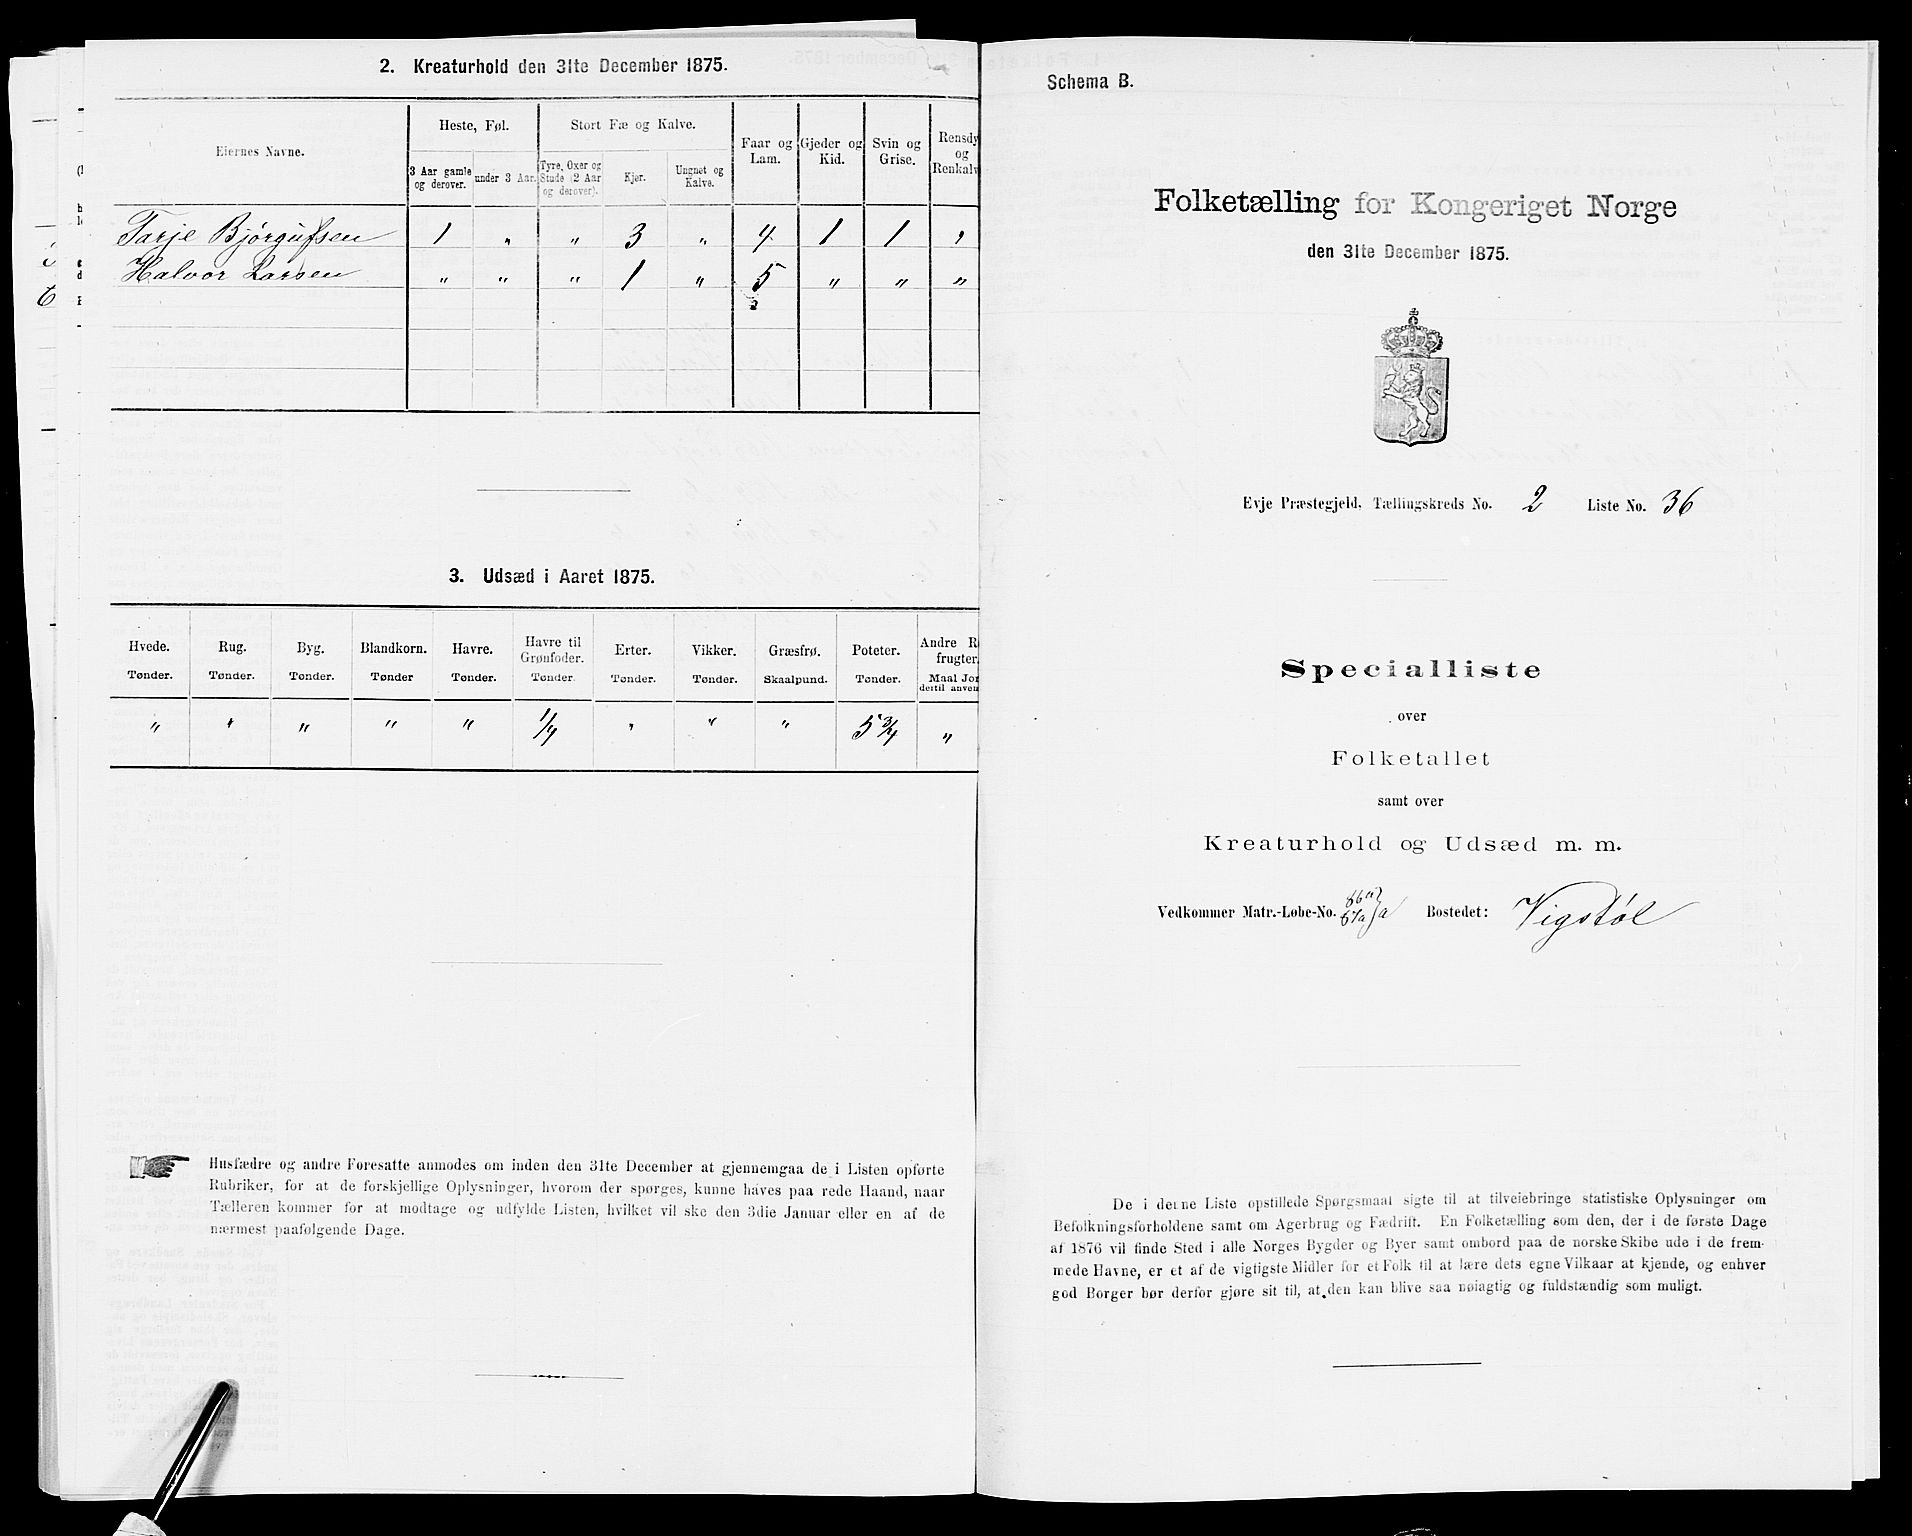 2. Kreaturhold den 31te December 1875.
Eiernes Navne.
Heste, Føl.
Stort Fæ og Kalve.
3 Aar gamle og derover.
under 3 Aar.
Tyre, Oxer og Stude (2 Aar og derover).
Kjer.
Ungnet og Kalve.
Faar og Lam.
Gjeder og Kid.
Svin og Grise.
Rensdy og Renkalv
Tarje Bjørgufsen 1 " " 3 " 4 1 1 "
Halvor Larsen " " " 1 " 5 " " "
3. Udsæd i Aaret 1875.
Hvede. Rug. Byg. Blandkorn. Havre. Havre til Grønfoder. Erter. Vikker. Græsfrø. Poteter. Andre R frugter.
Tønder. Tønder. Tønder. Tønder Tønder. Tønder. Tønder. Tønder. Skaalpund. Tønder. Maal Jor dertil anven
" " " " " 1/4 " " " 5 3/4 "
Husfædre og andre Foresatte anmodes om inden den 31te December at gjennemgaa de i Listen opførte
Rubriker, for at de forskjellige Oplysninger, hvorom der spørges, kunne haves paa rede Haand, naar
Tælleren kommer for at modtage og udfylde Listen, hvilket vil ske den 3die Januar eller en af de
nærmest paafølgende Dage.
Schema B.
Folketælling for Kongeriget Norge
den 31te December 1875.
Evje Præstegjeld, Tællingskreds No. 2 Liste No. 36
Specialliste
over
Folketallet
samt over
Kreaturhold og Udsæd m. m.
Vedkommer Matr.-Løbe-No. a Bostedet: Vigstøl
De i denne Liste opstillede Spørgsmaal sigte til at tilveiebringe statistiske Oplysninger om
Befolkningsforholdene samt om Agerbrug og Fædrift. En Folketælling som den, der i de første Dage
af 1876 vil finde Sted i alle Norges Bygder og Byer samt ombord paa de norske Skibe ude i de frem-
mede Havne, er et af de vigtigste Midler for et Folk til at lære dets egne Vilkaar at kjende, og enhver
god Borger bør derfor gjøre sit til, at den kan blive saa nøiagtig og fuldstændig som muligt.